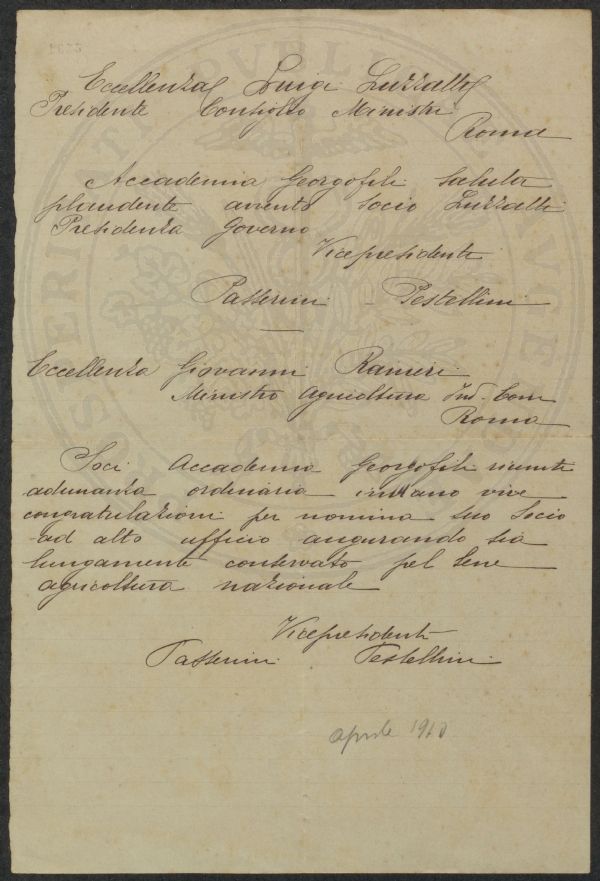 Eccellenza Luigi Luzzatti
Presidente Consiglio Ministri
Roma
Accademia Georgofili saluta
plaudente avvento socio Luzzatti
Presidenza Governo
Vicepresidenti
Passerini - Pestellini
Eccellenza Giovanni Raineri
Ministro Agricoltura Ind. Com
Roma
Soci Accademia Georgofili riuniti
adunanza ordinaria inviano vive
congratulazioni per nomina suo Socio
ad alto ufficio augurando sia
lungamente conservato pel bene
agricoltura nazionale
Vicepresidenti
Passerini Pestellini
aprile 1910